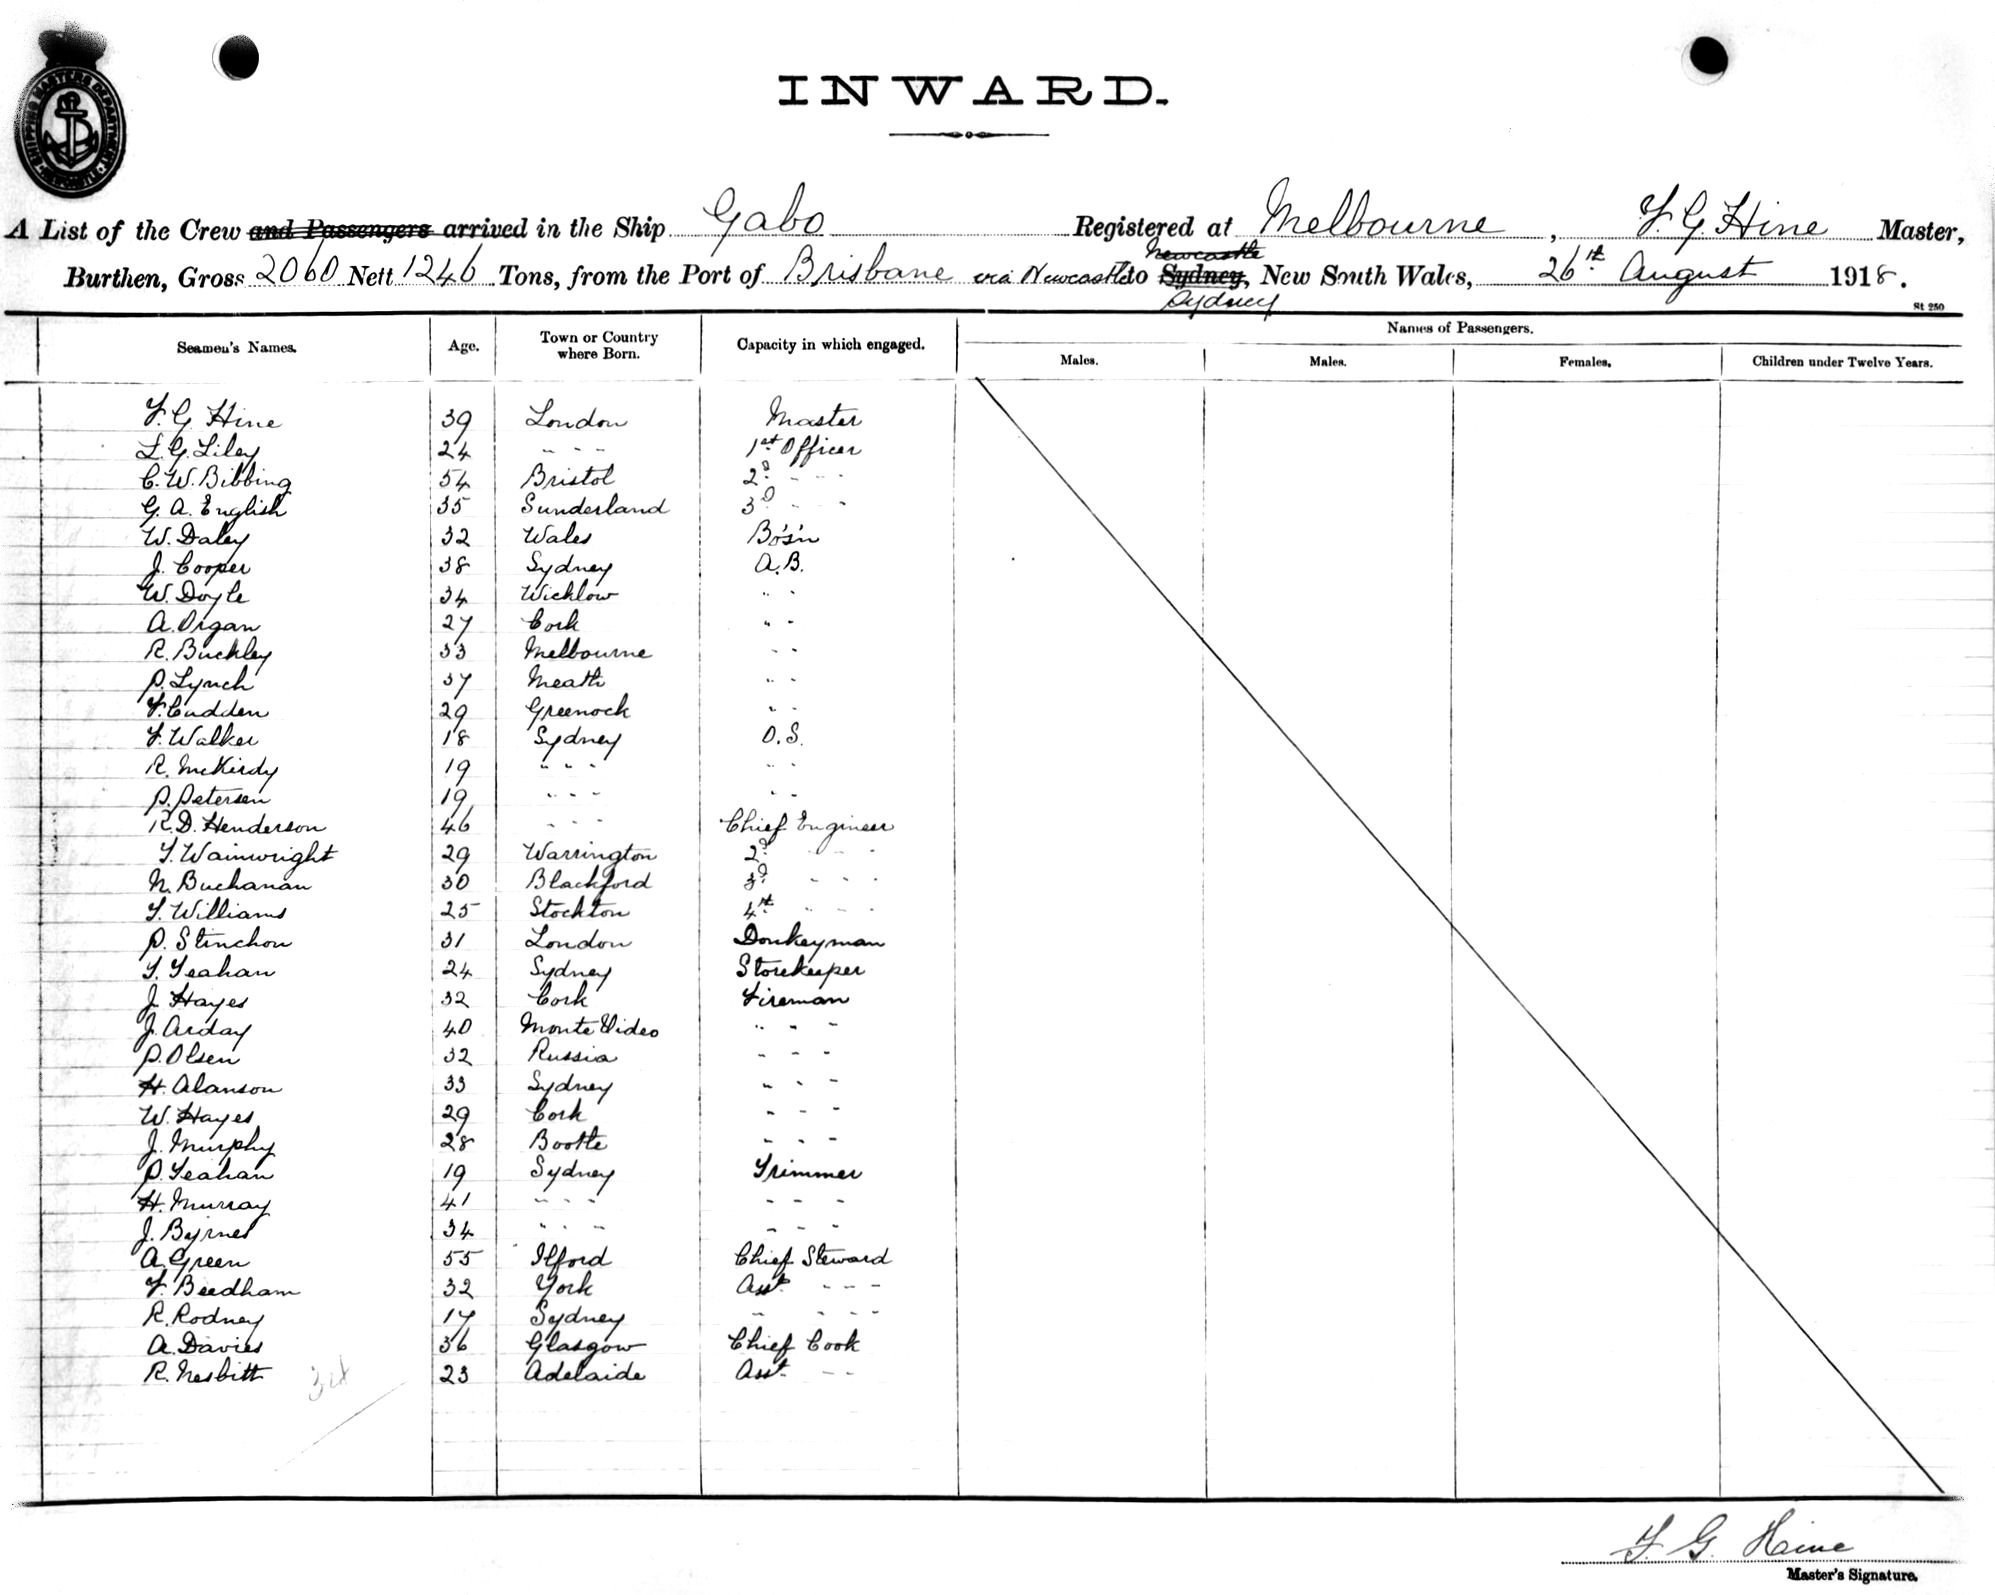 SHIPPING MASTERS DEPARTMENT NEWCASTLE
INWARD.
A List of the Crew and Passengers arrived in the Ship Gabo Registered at Melbourne, F. G. Hine Master,
Newcastle
Burthen, Gross 2060 Nett 1246 Tons, from the Port of Brisbane via Newcastle to Sydney, New South Wales, 26th August 1918.
Sydney
St 250
Seamen's Names. Age. Town or Country where Born. Capacity in which engaged. Names of Passengers.
Males. Males. Females. Children under Twelve Years.
F. G. Hine 39 London Master
L. G. Liley 24 " " " 1st Officer
C. W. Bibbing 54 Bristol 2d " "
G. A. English 35 Sunderland 3d " "
W. Daley 32 Wales Bo's'n
J. Cooper 38 Sydney A.B.
W. Doyle 34 Wicklow " "
A. Organ 27 Cork " "
R. Buckley 33 Melbourne " "
P. Lynch 37 Meath " "
F. Cudden 29 Greenock " "
F. Walker 18 Sydney O.S.
R. McKirdy 19 " " " " "
P. Petersen 19 " " " " "
R. D. Henderson 46 " " " Chief Engineer
T. Wainwright 29 Warrington 2d " " "
N. Buchanan 30 Blackford 3d " " "
T. Williams 25 Stockton 4th " " "
P. Stinchon 31 London Donkeyman
T. Leahan 24 Sydney Storekeeper
J. Hayes 32 Cork Fireman
J. Arday 40 Monte Video " " "
P. Olsen 32 Russia " " "
H. Alanson 33 Sydney " " "
W. Hayes 29 Cork " " "
J. Murphy 28 Bootle " " "
P. Leahan 19 Sydney Trimmer
H. Murray 41 " " " " " "
J. Byrnes 34 " " " " " "
A. Green 55 Ilford Chief Steward
F. Beedham 32 York Asst. " " "
R. Rodney 17 Sydney " " " "
A. Davies 36 Glasgow Chief Cook
R. Nesbitt 23 Adelaide Asst. " "
F. G. Hine
Master's Signature.